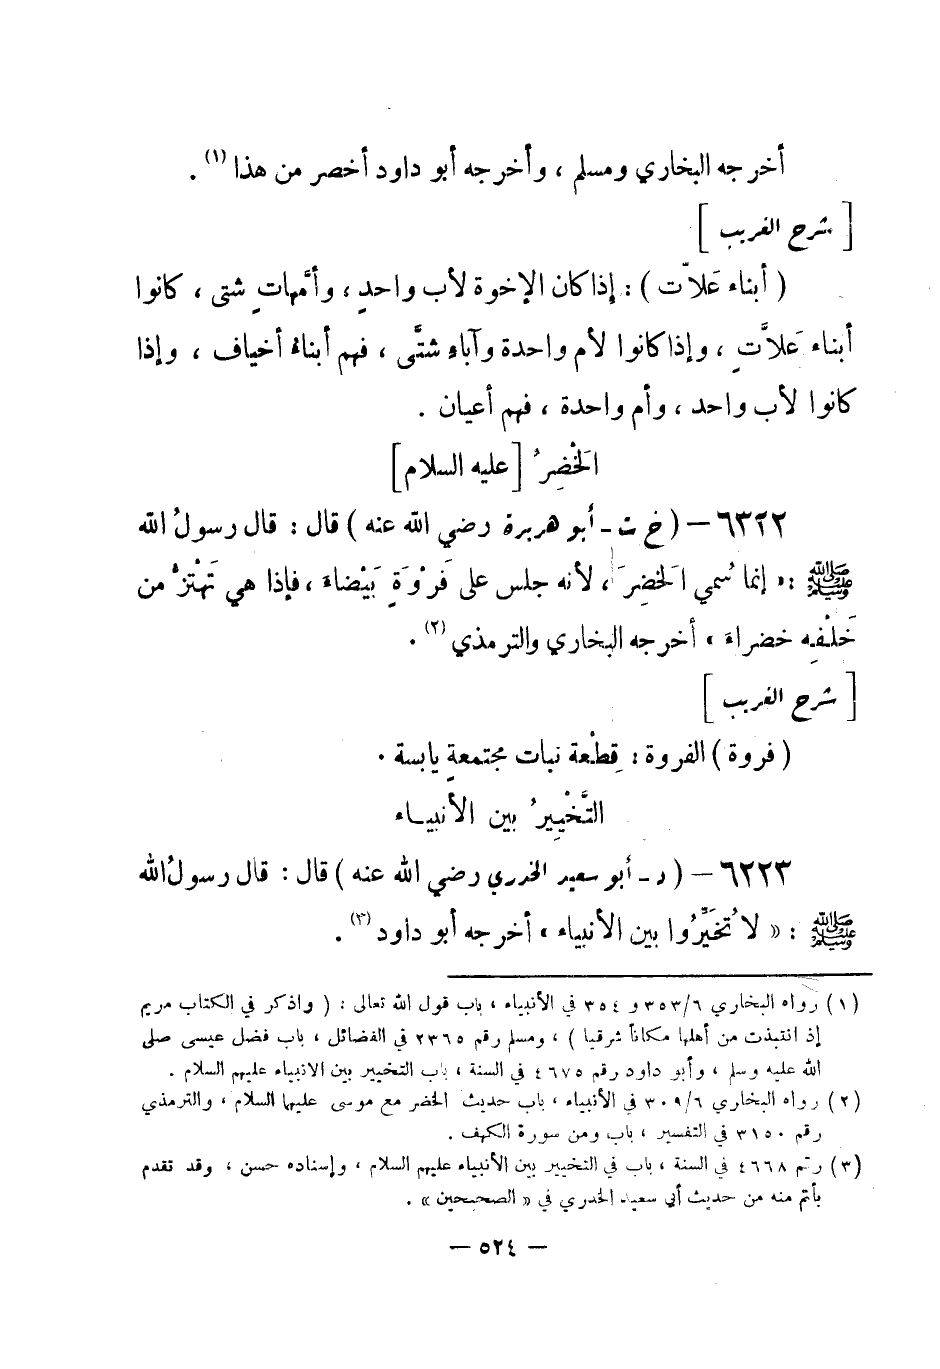 أخرجه البخاري ومسلم ، وأخرجه أبو داود أخصر من هذا (١) .
[ شرح الغريب ]
( أبناء عَلاّت ) : إذا كان الإخوة لأب واحدٍ ، وأمَّهاتٍ شتى ، كانوا
أبناء عَلاَّتٍ ، وإذا كانوا لأم واحدة وآباءٍ شتَّى ، فهم أبناءُ أخياف ، وإذا
كانوا لأب واحد ، وأم واحدة ، فهم أعيان .
الخَضِرُ [ عليه السلام ]
٦٣٢٢ – ( خ ت - أبو هريرة رضي الله عنه ) قال : قال رسولُ الله
ﷺ : « إنما سُمي الخَضِرَ ، لأنه جلس على فَرْوَةٍ بَيْضاءَ ، فإذا هي تَهْتَزُّ من
خَلْفِه خضراءَ » أخرجه البخاري والترمذي (٢) .
[ شرح الغريب ]
( فروة ) الفروة : قِطْعة نبات مجتمعةٍ يابسة .
التَّخْيِيرُ بين الأنبياء
٦٢٢٣ – ( د - أبو سعيد الخدري رضي الله عنه ) قال : قال رسولُ الله
ﷺ : « لا تُخَيِّرُوا بين الأنبياء » أخرجه أبو داود (٣) .
(١) رواه البخاري ٣٥٣/٦ و ٣٥٤ في الأنبياء ، باب قول الله تعالى : ( واذكر في الكتاب مريم
إذ انتبذت من أهلها مكاناً شرقيا ) ، ومسلم رقم ٢٣٦٥ في الفضائل ، باب فضل عيسى صلى
الله عليه وسلم ، وأبو داود رقم ٤٦٧٥ في السنة ، باب التخيير بين الانبياء عليهم السلام .
(٢) رواه البخاري ٣٠٩/٦ في الأنبياء ، باب حديث الخضر مع موسى عليها السلام ، والترمذي
رقم ٣١٥٠ في التفسير ، باب ومن سورة الكهف .
(٣) رقم ٤٦٦٨ في السنة ، باب في التخيير بين الأنبياء عليهم السلام ، وإسناده حسن ، وقد تقدم
بأتم منه من حديث أبي سعيد الخدري في « الصحيحين » .
— ٥٢٤ —